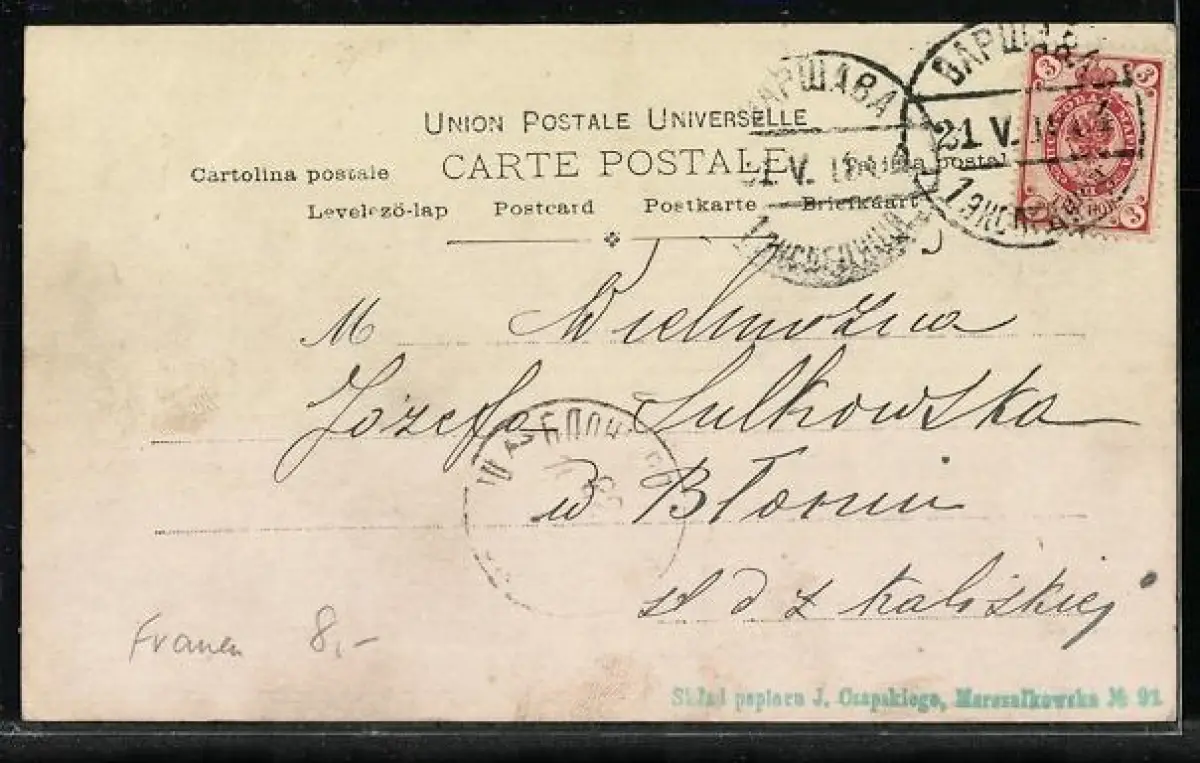 UNION POSTALE UNIVERSELLE
CARTE POSTALE
Cartolina postale
postal
Levelező-lap Postcard Postkarte Briefkaart
ВАРШАВА
21 V.
3 3
3
ВАРШАВА
V.
M Wielmożna
Józefa Sulkowska
w Błoniu
st d ż Kaliskiej
Frauen 8,-
Skład papieru J. Czapskiego, Marszałkowska № 91